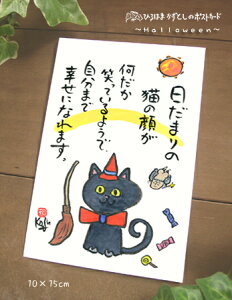 ひろはまかずとしのポストカード
～Halloween～
日だまりの
猫の顔が
何だか
笑っているようで、
自分まで
幸せになれます。
10×15cm